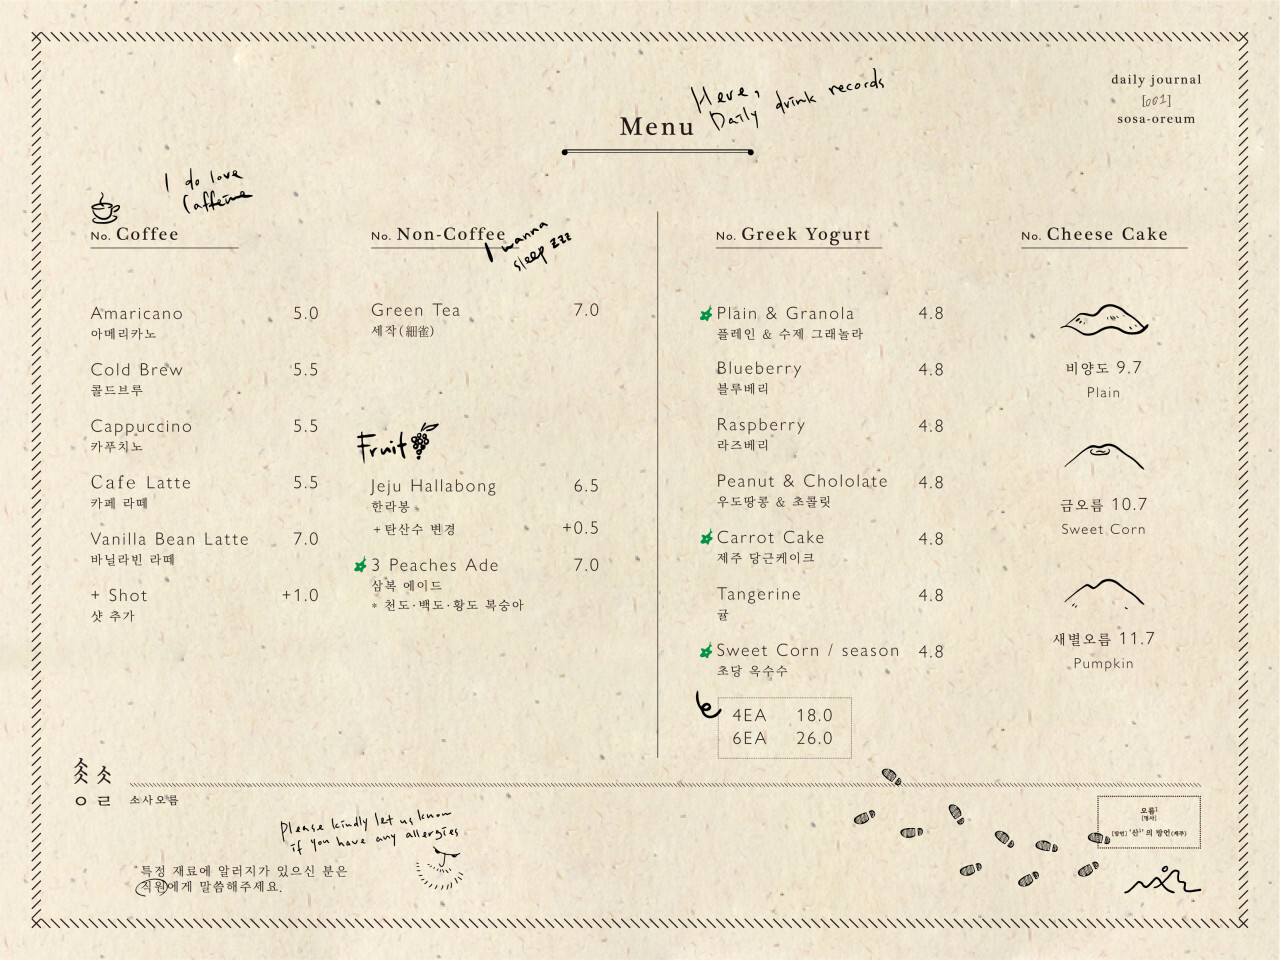 Here,
Daily drink records
Menu
daily journal
[001]
sosa-oreum
I do love
Caffeine
No. Coffee
Amaricano 5.0
아메리카노
Cold Brew 5.5
콜드브루
Cappuccino 5.5
카푸치노
Cafe Latte 5.5
카페 라떼
Vanilla Bean Latte 7.0
바닐라빈 라떼
+ Shot +1.0
샷 추가
No. Non-Coffee
I wanna
sleep zzz
Green Tea 7.0
세작(細雀)
Fruit
Jeju Hallabong 6.5
한라봉
+탄산수 변경 +0.5
3 Peaches Ade 7.0
삼복 에이드
* 천도·백도·황도 복숭아
No. Greek Yogurt
Plain & Granola 4.8
플레인 & 수제 그래놀라
Blueberry 4.8
블루베리
Raspberry 4.8
라즈베리
Peanut & Chololate 4.8
우도땅콩 & 초콜릿
Carrot Cake 4.8
제주 당근케이크
Tangerine 4.8
귤
Sweet Corn / season 4.8
초당 옥수수
4EA 18.0
6EA 26.0
No. Cheese Cake
비양도 9.7
Plain
금오름 10.7
Sweet Corn
새별오름 11.7
Pumpkin
소사오름
Please kindly let us know
if you have any allergies
*특정 재료에 알러지가 있으신 분은
직원에게 말씀해주세요.
오름
[명사]
[방언] '산'의 방언(제주)